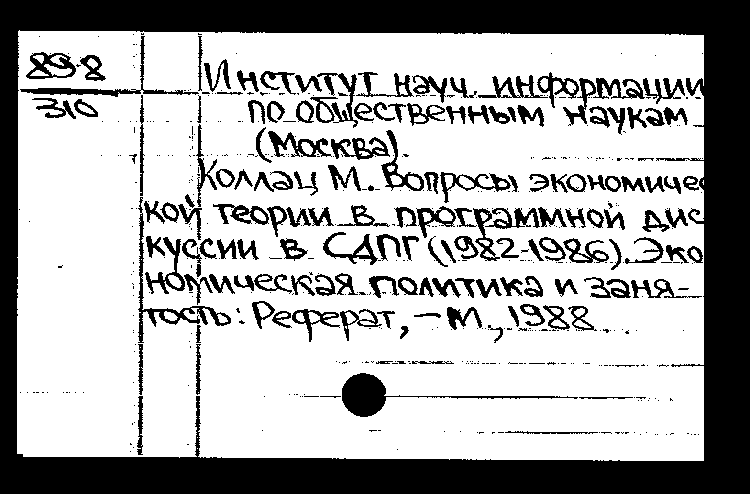 89-8
310
Институт науч. информации
по общественным наукам
(Москва).
Коллац М. Вопросы экономичес
кой теории в программной дис
куссии в СДПГ (1982-1986). Эко
номическая политика и заня-
тость: Реферат, – М., 1988